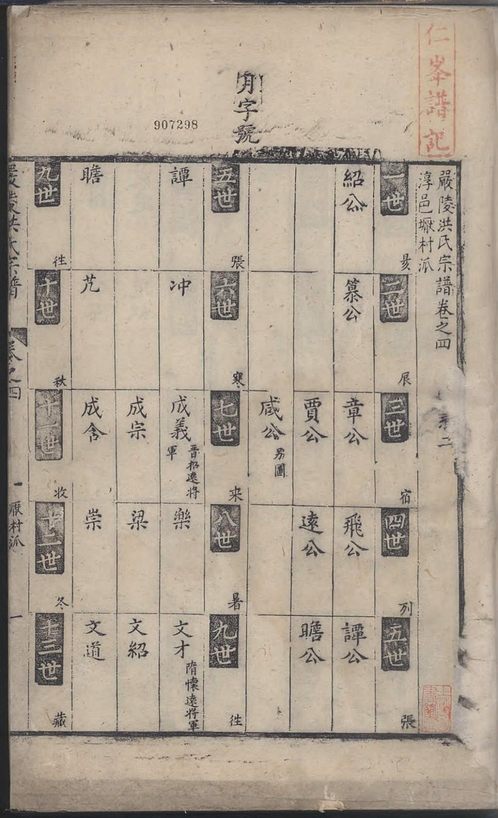 仁峯譜記
月字號
907298
嚴陵洪氏宗譜卷之四
淳邑塘村派
一世
二世 昃
三世
四世 宿
五世 列
張
紹公
慕公
章公
飛公
譚公
賈公
遠公
瞻公
咸公 另圖
五世 張
六世 寒
七世 來
八世 暑
九世 往
譚
冲
成義 晋招遠將軍
樂
文才 隋懷遠將軍
成宗
梁
文紹
瞻
芃
成舍
崇
文道
九世 往
十世 秋
十一世 收
十二世 冬
十三世 藏
嚴陵洪氏宗譜
卷之四
一